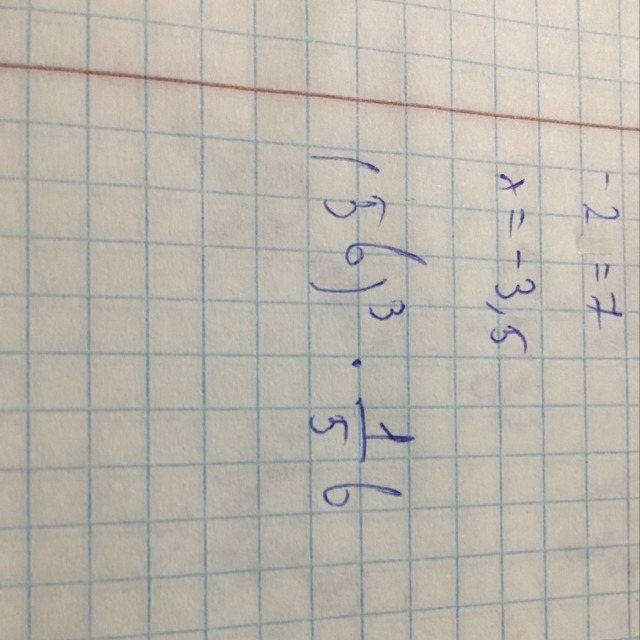 -2 =7
x = -3,5
(5b)³ · 1/5 b